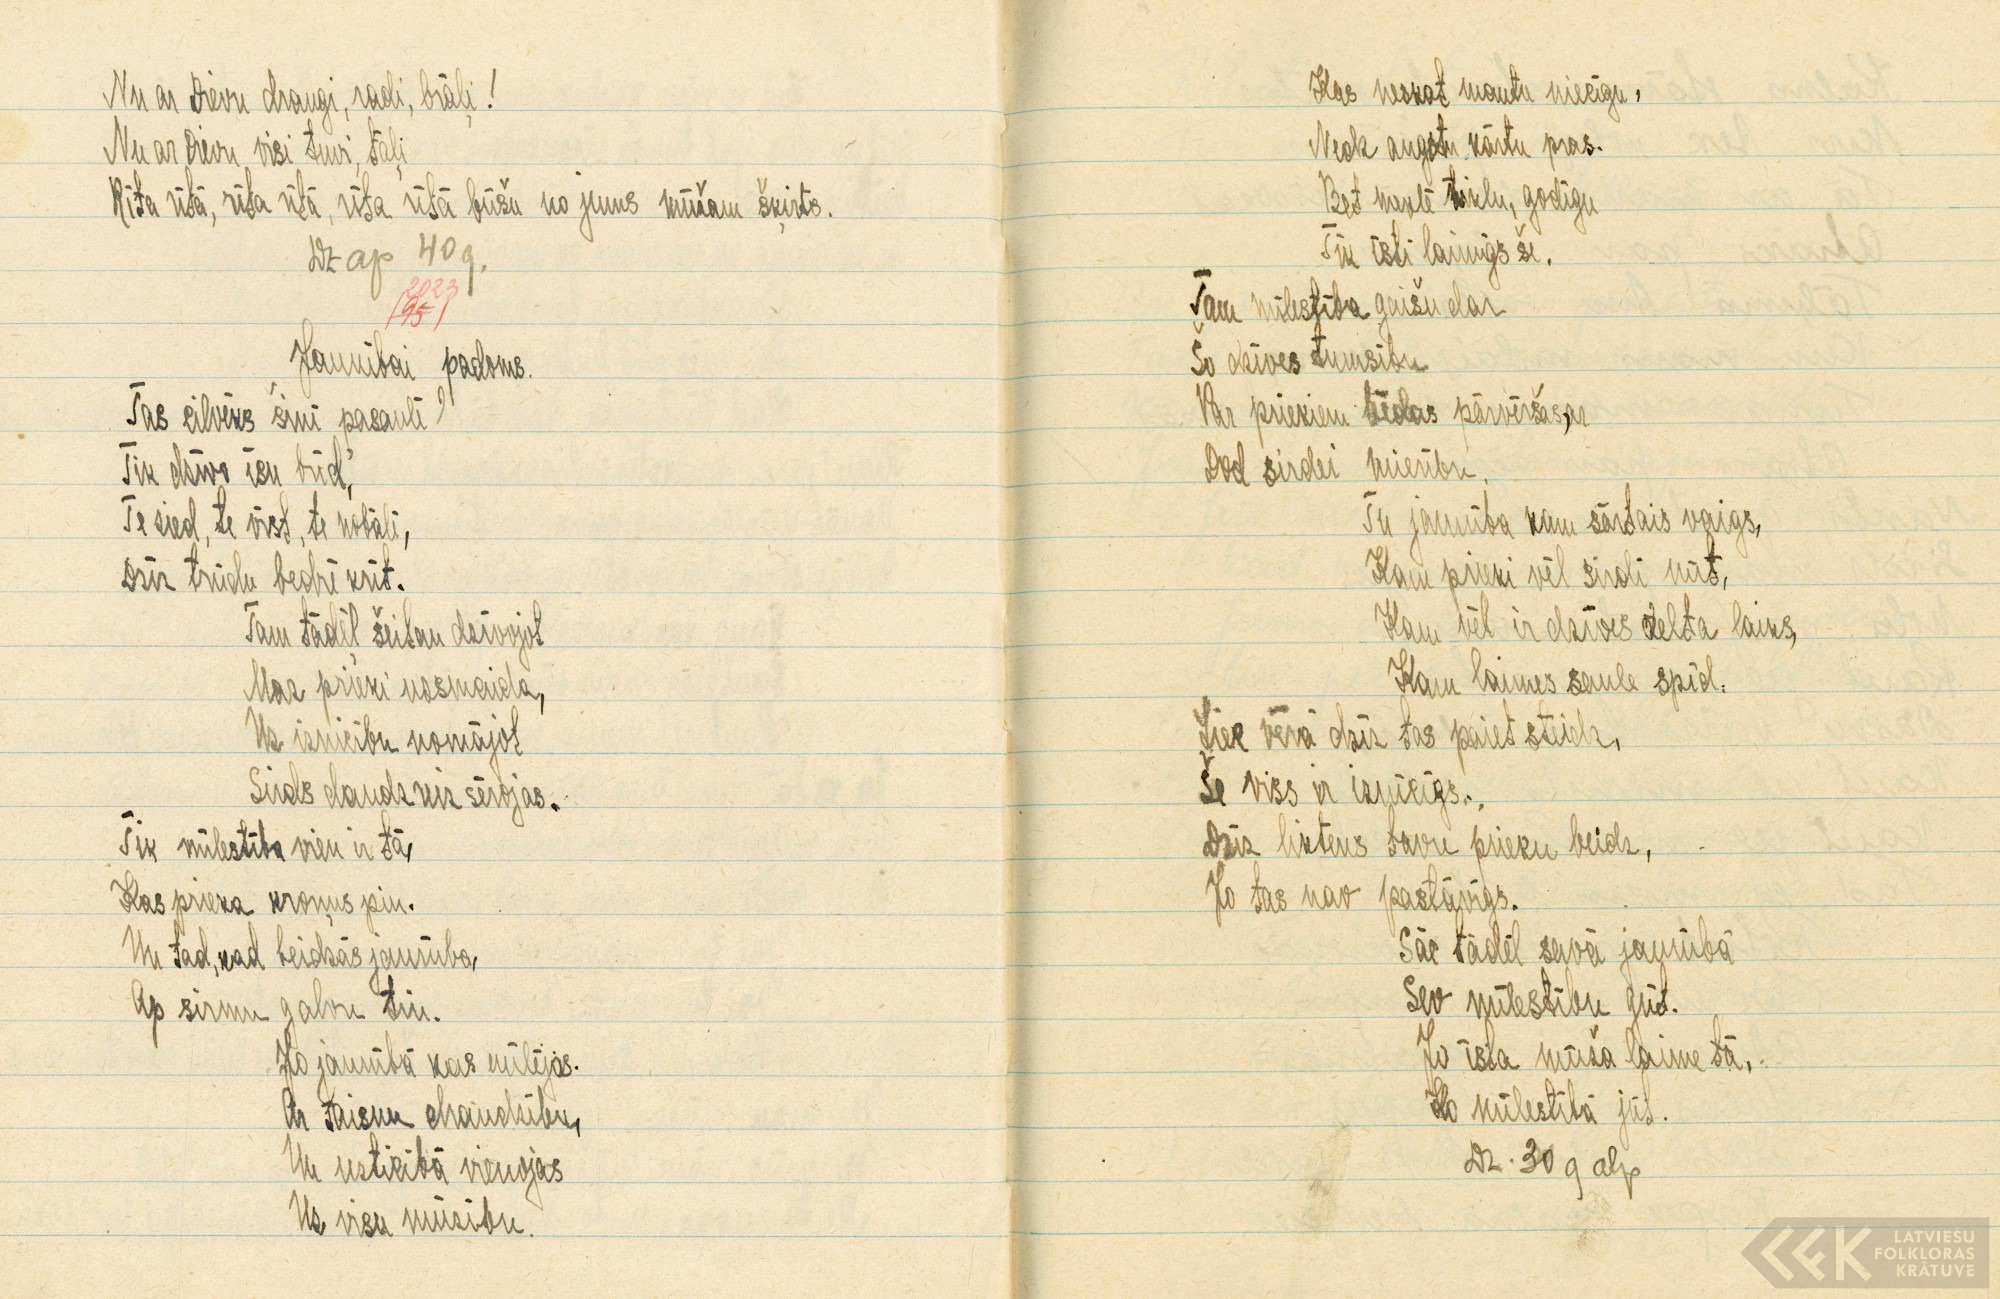 Nu ar Dievu draugi, radi, brāļi!
Nu ar Dievu visi tuvi, tāļi
Rīta rītā, rīta rītā, rīta rītā būšu no jums mūžam šķirts.
Dz ap 40 g.
2023
/95/
Jaunībai padoms.
Tas cilvēks šinī pasaulē
Tik dzīvo īsu brīd,
Te zied, te vīst, te nobālē,
Drīz trūdu bedrē krīt.
Tam tādēļ šeitan dzīvojot
Maz prieki uzsmaida,
Uz iznīcību nomājot
Sirds daudzreiz sērojas.
Tik mīlestība vien ir tā,
Kas prieka kroņus pin.
Un tad, kad beidzās jaunība,
Ap sirmu galvu tin.
Jo jaunībā kas mīlējas.
Ar taisnu draudzību,
Un uzticībā vienojas
Uz visu mūzibu.
Kas neskat mantu niecīgu,
Nedk augstu kārtu pras.
Bet meklē tiklu, godīgu
Tik īsti laimīgs še.
Tam mīlestība gaišu dar
Šo dzīves tumsību
Par priekiem bēdas pārvēršas, ar
Dod sirdei mierību.
Tu jaunība kam sārtais vaigs,
Kam prieki vēl sirdī mīt,
Kam vēl ir dzīves zelta laiks,
Kam laimes saule spīd.
Liec vērā drīz tas paiet steidz,
Še viss ir iznīcīgs.
Drīz liktens tavu prieku beidz,
Jo tas nav pastāvīgs.
Sāc tādēļ savā jaunībā
Sev mīlestību gūt.
Jo īsta mūža laime tā,
Ko mīlestībā jūt.
Dz. 30 g alp
LATVIEŠU
FOLKLORAS
KRĀTUVE